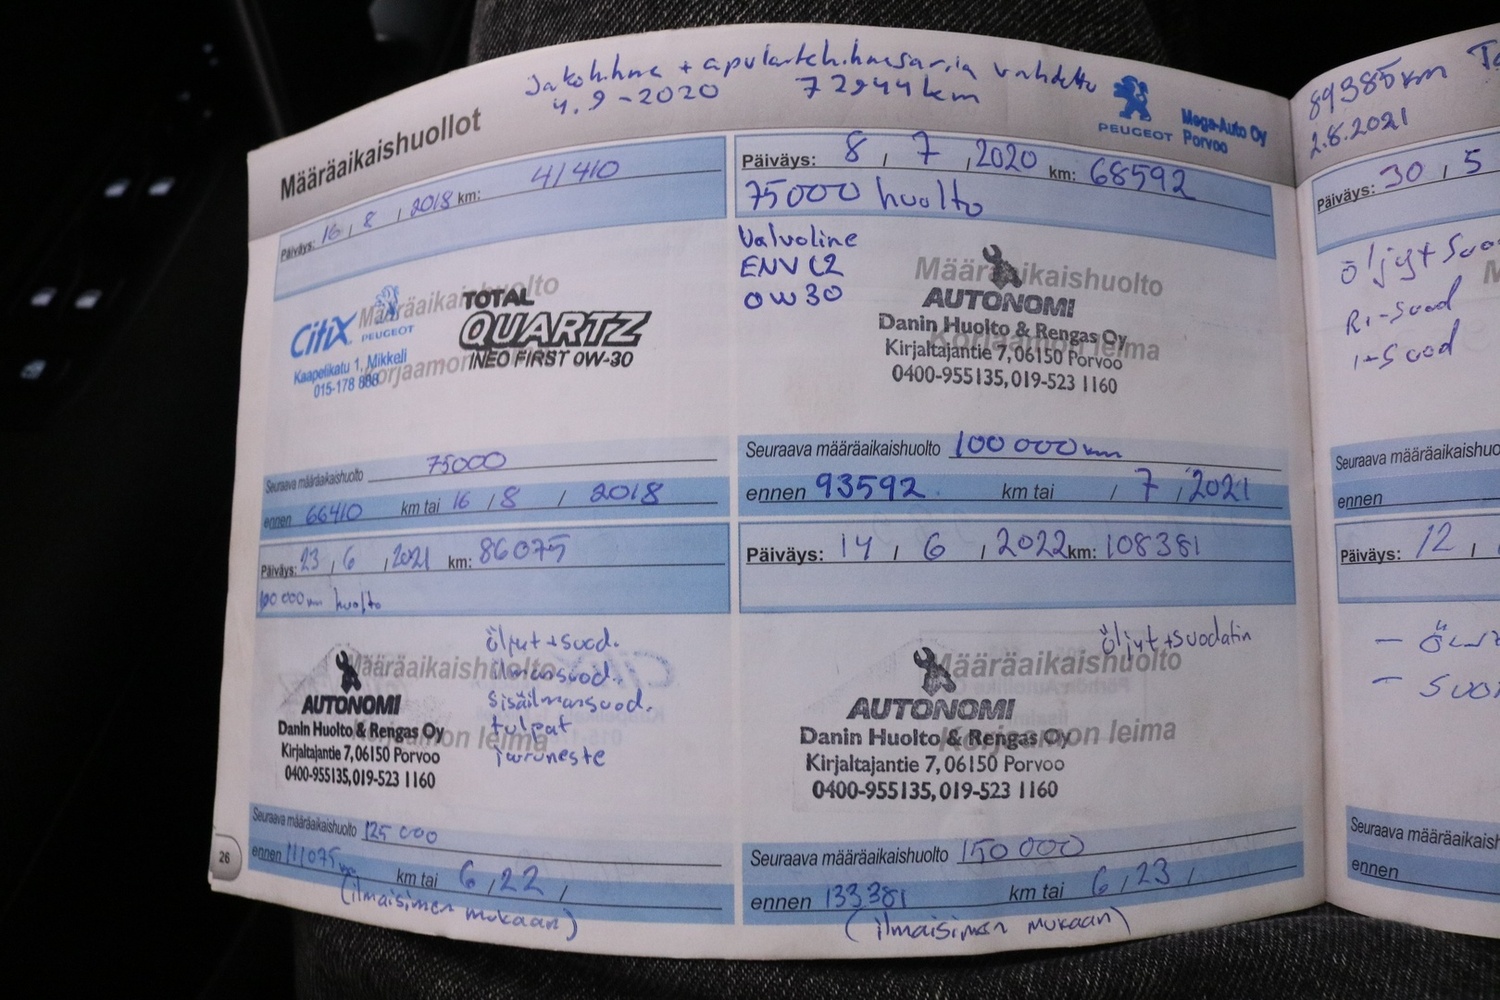 Jakohihna + apulaitehihnasarja vaihdettu
4.9-2020 72944km
PEUGEOT
Mega-Auto Oy
Porvoo
Määräaikaishuollot
Päiväys: 16 / 8 / 2018 km: 41410
Määräaikaishuolto
Korjaamon leima
CitiX PEUGEOT
Kaapelikatu 1, Mikkeli
015-178 888
TOTAL
QUARTZ
INEO FIRST 0W-30
Seuraava määräaikaishuolto 75000
ennen 66410 km tai 16 / 8 / 2018
Päiväys: 8 / 7 , 2020 km: 68592
75000 huolto
Valvoline
ENV C2
0W30
Määräaikaishuolto
Korjaamon leima
AUTONOMI
Danin Huolto & Rengas Oy
Kirjaltajantie 7, 06150 Porvoo
0400-955135, 019-523 1160
Seuraava määräaikaishuolto 100 000 km
ennen 93592 km tai / 7 , 2021
Päiväys: 23 , 6 , 2021 km: 86075
100 000 km huolto
öljyt + suod.
ilmansuod.
sisäilmansuod.
tulpat
jarruneste
Määräaikaishuolto
Korjaamon leima
AUTONOMI
Danin Huolto & Rengas Oy
Kirjaltajantie 7, 06150 Porvoo
0400-955135, 019-523 1160
Seuraava määräaikaishuolto 125 000
ennen 111075 km km tai 6 , 22 ,
(ilmaisimen mukaan)
26
Päiväys: 14 / 6 , 2022 km: 108381
öljyt + suodatin
Määräaikaishuolto
Korjaamon leima
AUTONOMI
Danin Huolto & Rengas Oy
Kirjaltajantie 7, 06150 Porvoo
0400-955135, 019-523 1160
Seuraava määräaikaishuolto 150 000
ennen 133381 km tai 6 , 23 ,
(ilmaisimen mukaan)
89385km
2.8.2021
Päiväys: 30 , 5
öljyt + Suo
Seuraava määräaikaishuo
ennen
Päiväys: 12 ,
Seuraava määräaikaish
ennen